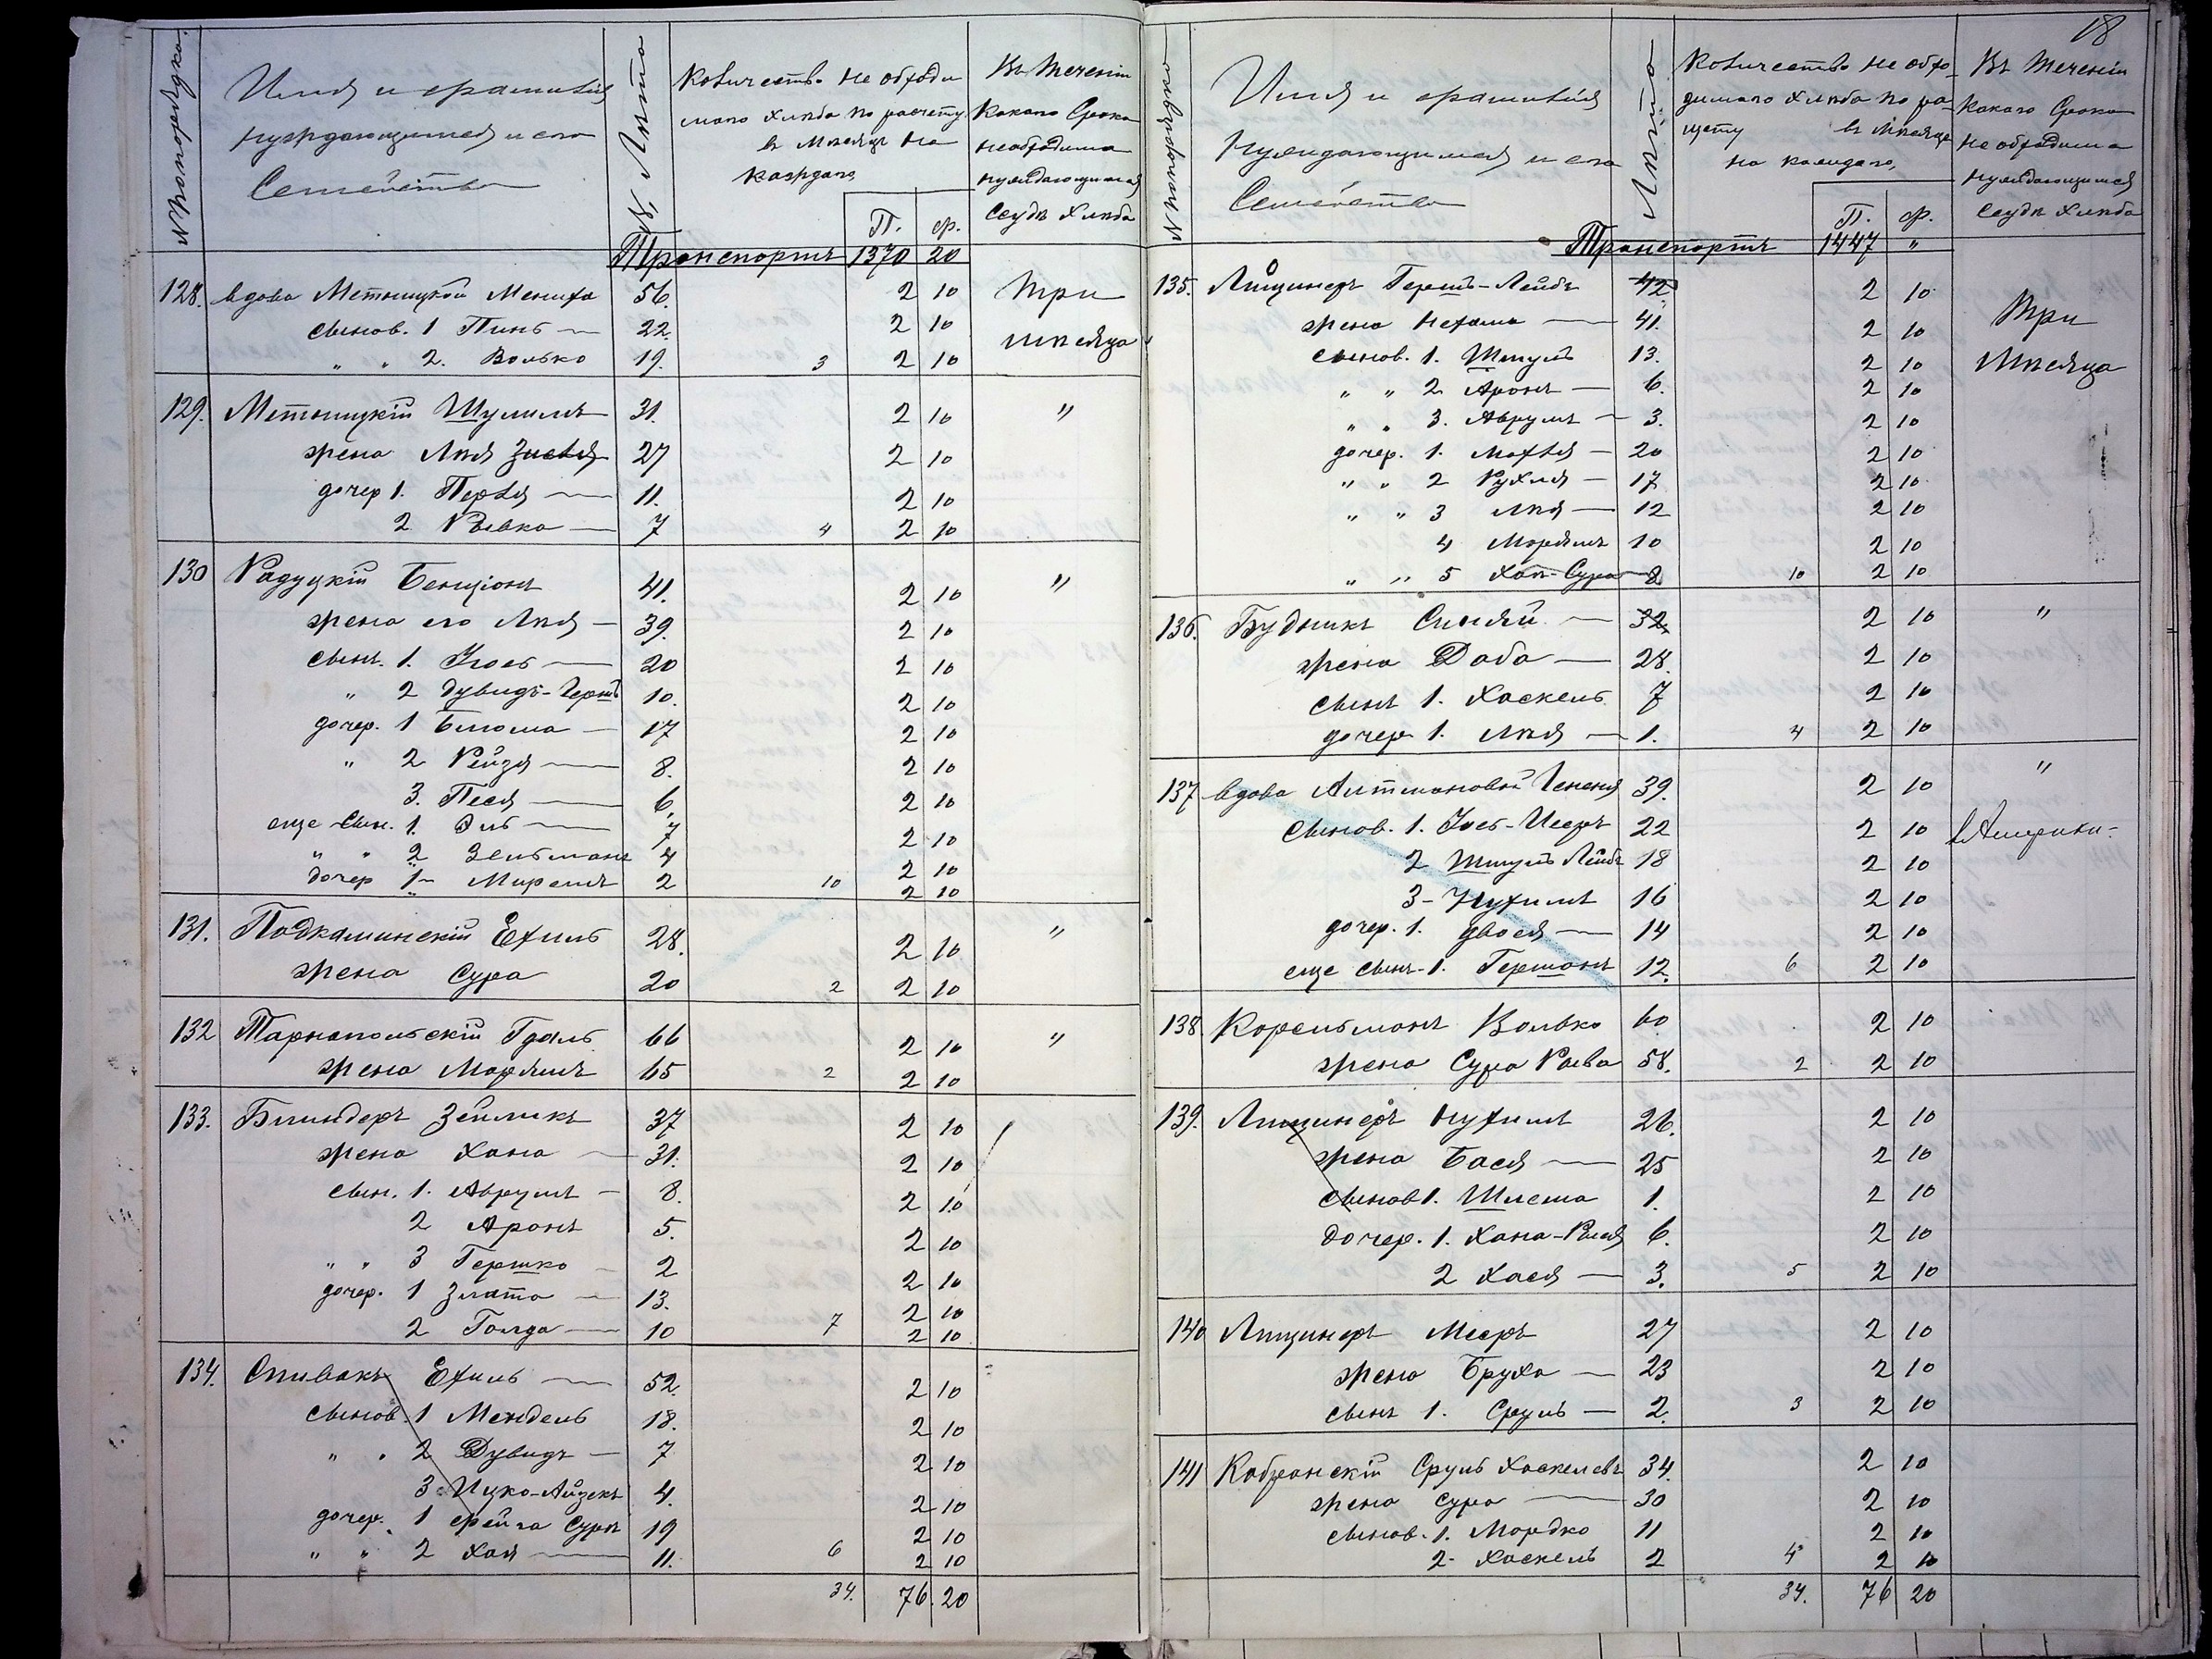 № по порядка.
Имя и фамилія
нуждающимся и его
Семейства
№ Лѣта
Количество необходи
маго хлѣба по расчету
въ мѣсяцъ на
каждаго
П. ф.
Въ теченіи
Какаго Срока
необходима
нуждающимся
Ссуда Хлѣба
Транспортъ 1370 20
128. вдова Метницкой Мениха 56. 2 10 три
сынов. 1 Пинь 22. 2 10 мѣсяца
" " 2. Волько 19. 3 2 10
129. Метницкій Шулимъ 31. 2 10 "
жена Лѣя Зисля 27 2 10
дочер 1. Перля 11. 2 10
2 Рывка 7 4 2 10
130 Радуцкій Бенціонъ 41. 2 10 "
жена его Лѣя 39. 2 10
сынъ. 1. Іось 20 2 10
" 2 Дувидъ-Гершъ 10. 2 10
дочер. 1 Блюма 17 2 10
" 2 Рейзя 8. 2 10
3. Песя 6. 2 10
еще сын. 1. Эль 7 2 10
" " 2 Зельманъ 4 2 10
дочер 1 Миремъ 2 10 2 10
131. Подкаминскій Ехиль 28. 2 10 "
жена Сура 20 2 2 10
132 Тарнапольскій Гдаль 66 2 10 "
жена Маръямъ 65 2 2 10
133. Блиндеръ Зейликъ 37 2 10
жена Хана 31. 2 10
сын. 1. Аврумъ 8. 2 10
2 Аронъ 5. 2 10
" " 3 Гершко 2 2 10
дочер. 1 Злата 13. 2 10
2 Голда 10 7 2 10
134. Спивакъ Ехиль 52. 2 10
сынов. 1 Мендель 18. 2 10
" " 2 Дувидъ 7 2 10
3 Ицко-Айзекъ 4. 2 10
дочер. 1 Фейга Сура 19 2 10
" " 2 Хая 11. 6 2 10
34. 76 20
18
№ по порядка
Имя и фамилія
Нуждающимся и его
Семейства
Лѣта
Количество необхо-
димаго хлѣба по ра-
щету въ мѣсяцъ
на каждаго,
П. ф.
Въ теченіи
Какаго Срока
необходима
нуждающимся
Ссуда хлѣба
Транспортъ 1447 "
135. Лящинеръ Гершъ-Лейбъ 42 2 10 три
жена Нехама 41. 2 10 Мѣсяца
сынов. 1. Шмуль 13. 2 10
" " 2 Аронъ 6. 2 10
" " 3. Аврумъ 3. 2 10
дочер. 1. Махля 20 2 10
" " 2 Рухля 17 2 10
" " 3 Лѣя 12 2 10
4 Маръямъ 10 2 10
" " 5 Хая-Сура 8 10 2 10
136. Будникъ Синяй 32 2 10 "
жена Доба 28. 2 10
сынъ 1. Хаскель 7 2 10
дочер 1. Лѣя 1. 4 2 10
137 вдова Алтмановой Гененя 39. 2 10 "
сынов. 1. Іось-Иееръ 22 2 10 в Америки
2 Шмуль Лейбъ 18 2 10
3- Нухимъ 16 2 10
дочер. 1. Двося 14 2 10
еще сынъ. 1. Гершонъ 12. 6 2 10
138 Корсельманъ Волько 60. 2 10
жена Сура Раева 58. 2 2 10
139. Лящинеръ Нухимъ 26. 2 10
жена Бася 25 2 10
сынов 1. Шлема 1. 2 10
дочер. 1. Хана-Рыся 6. 2 10
2 Хася 3. 5 2 10
140 Лящинеръ Мееръ 27 2 10
жена Бруха 23 2 10
сынъ 1. Сруль 2. 3 2 10
141 Кобранскій Сруль Хаскелевъ 34. 2 10
жена Сура 30 2 10
сынов. 1. Мордко 11 2 10
2- Хаскель 2 4 2 10
34. 76 20